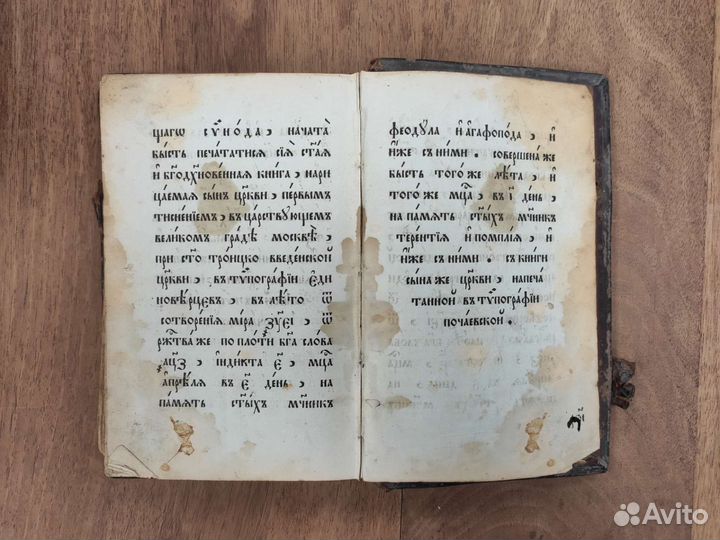 щагѡ сѵно́да, нача́та
бы́сть печа́татисѧ сїѧ̀ ст҃а́ѧ
и҆ бг҃одх҃нове́ннаѧ кни́га, нари
ца́емаѧ сы́нъ цр҃кви, пе́рвымъ
тисне́нїемъ, въ ца́рствующемъ
вели́комъ гра́дѣ москвѣ̀,
при ст҃о тро́ицко введе́нской
цр҃кви, въ тѷпогра́фїи є҆ди
новѣ́рцевъ, въ лѣ́то ѿ
сотворе́нїѧ мі́ра ҂зуеі, ѿ
рж҃тва́ же по пло́ти бг҃а сло́ва
҂ац҃з, і҆нди́кта є҃, мц҃а
а҆прі́лѧ въ є҃ де́нь, на
па́мѧть ст҃ы́хъ мч҃нкъ
феоду́ла и҆ а҆гаѳопо́да, и҆
и҆́же съ ни́ми. соверше́на же
бы́сть того́ же лѣ́та, и҆
того́ же мц҃а, въ і҃ де́нь,
на па́мѧть ст҃ы́хъ мч҃нкъ
тере́нтїѧ и҆ помпі́ѧ, и҆
и҆́же съ ни́ми. съ кни́ги
сы́на же цр҃кви, напеча́
танной въ тѷпогра́фїи
поча́евской.
Avito